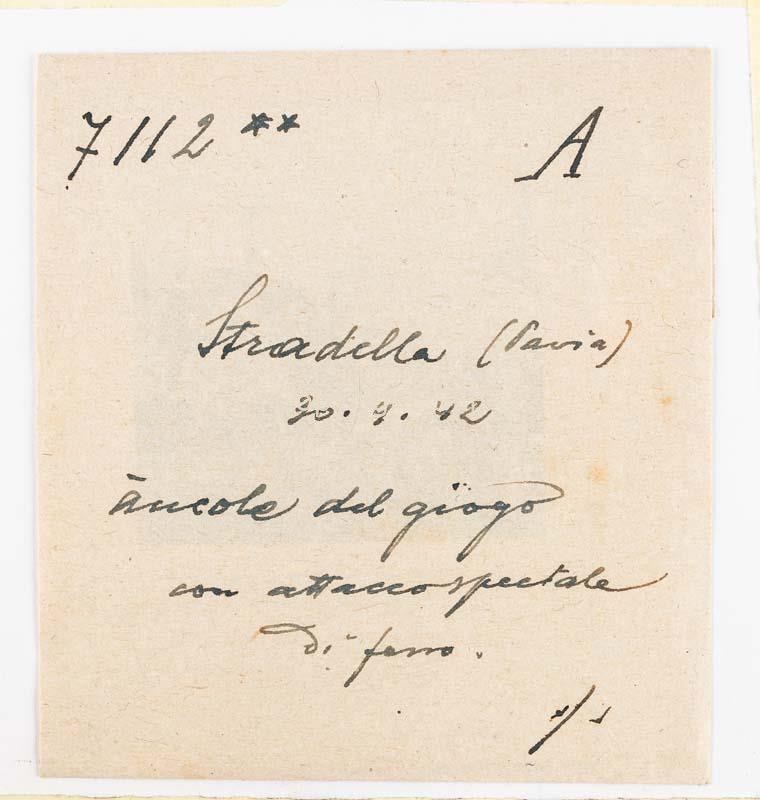 7112 ** A
Stradella (Pavia)
30. 9. 42
àncole del giogo
con attacco speciale
di ferro.